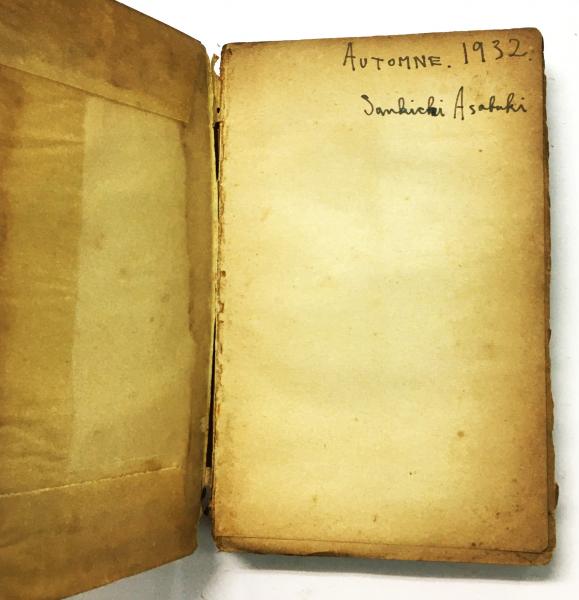 AUTOMNE. 1932.
Sankichi Asabuki